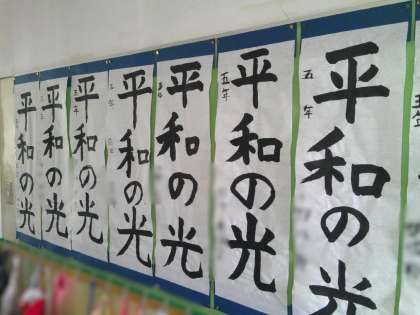 平和の光
五年
平和の光
五年
平和の光
平和の光
平和の光
平和の光
平和の光